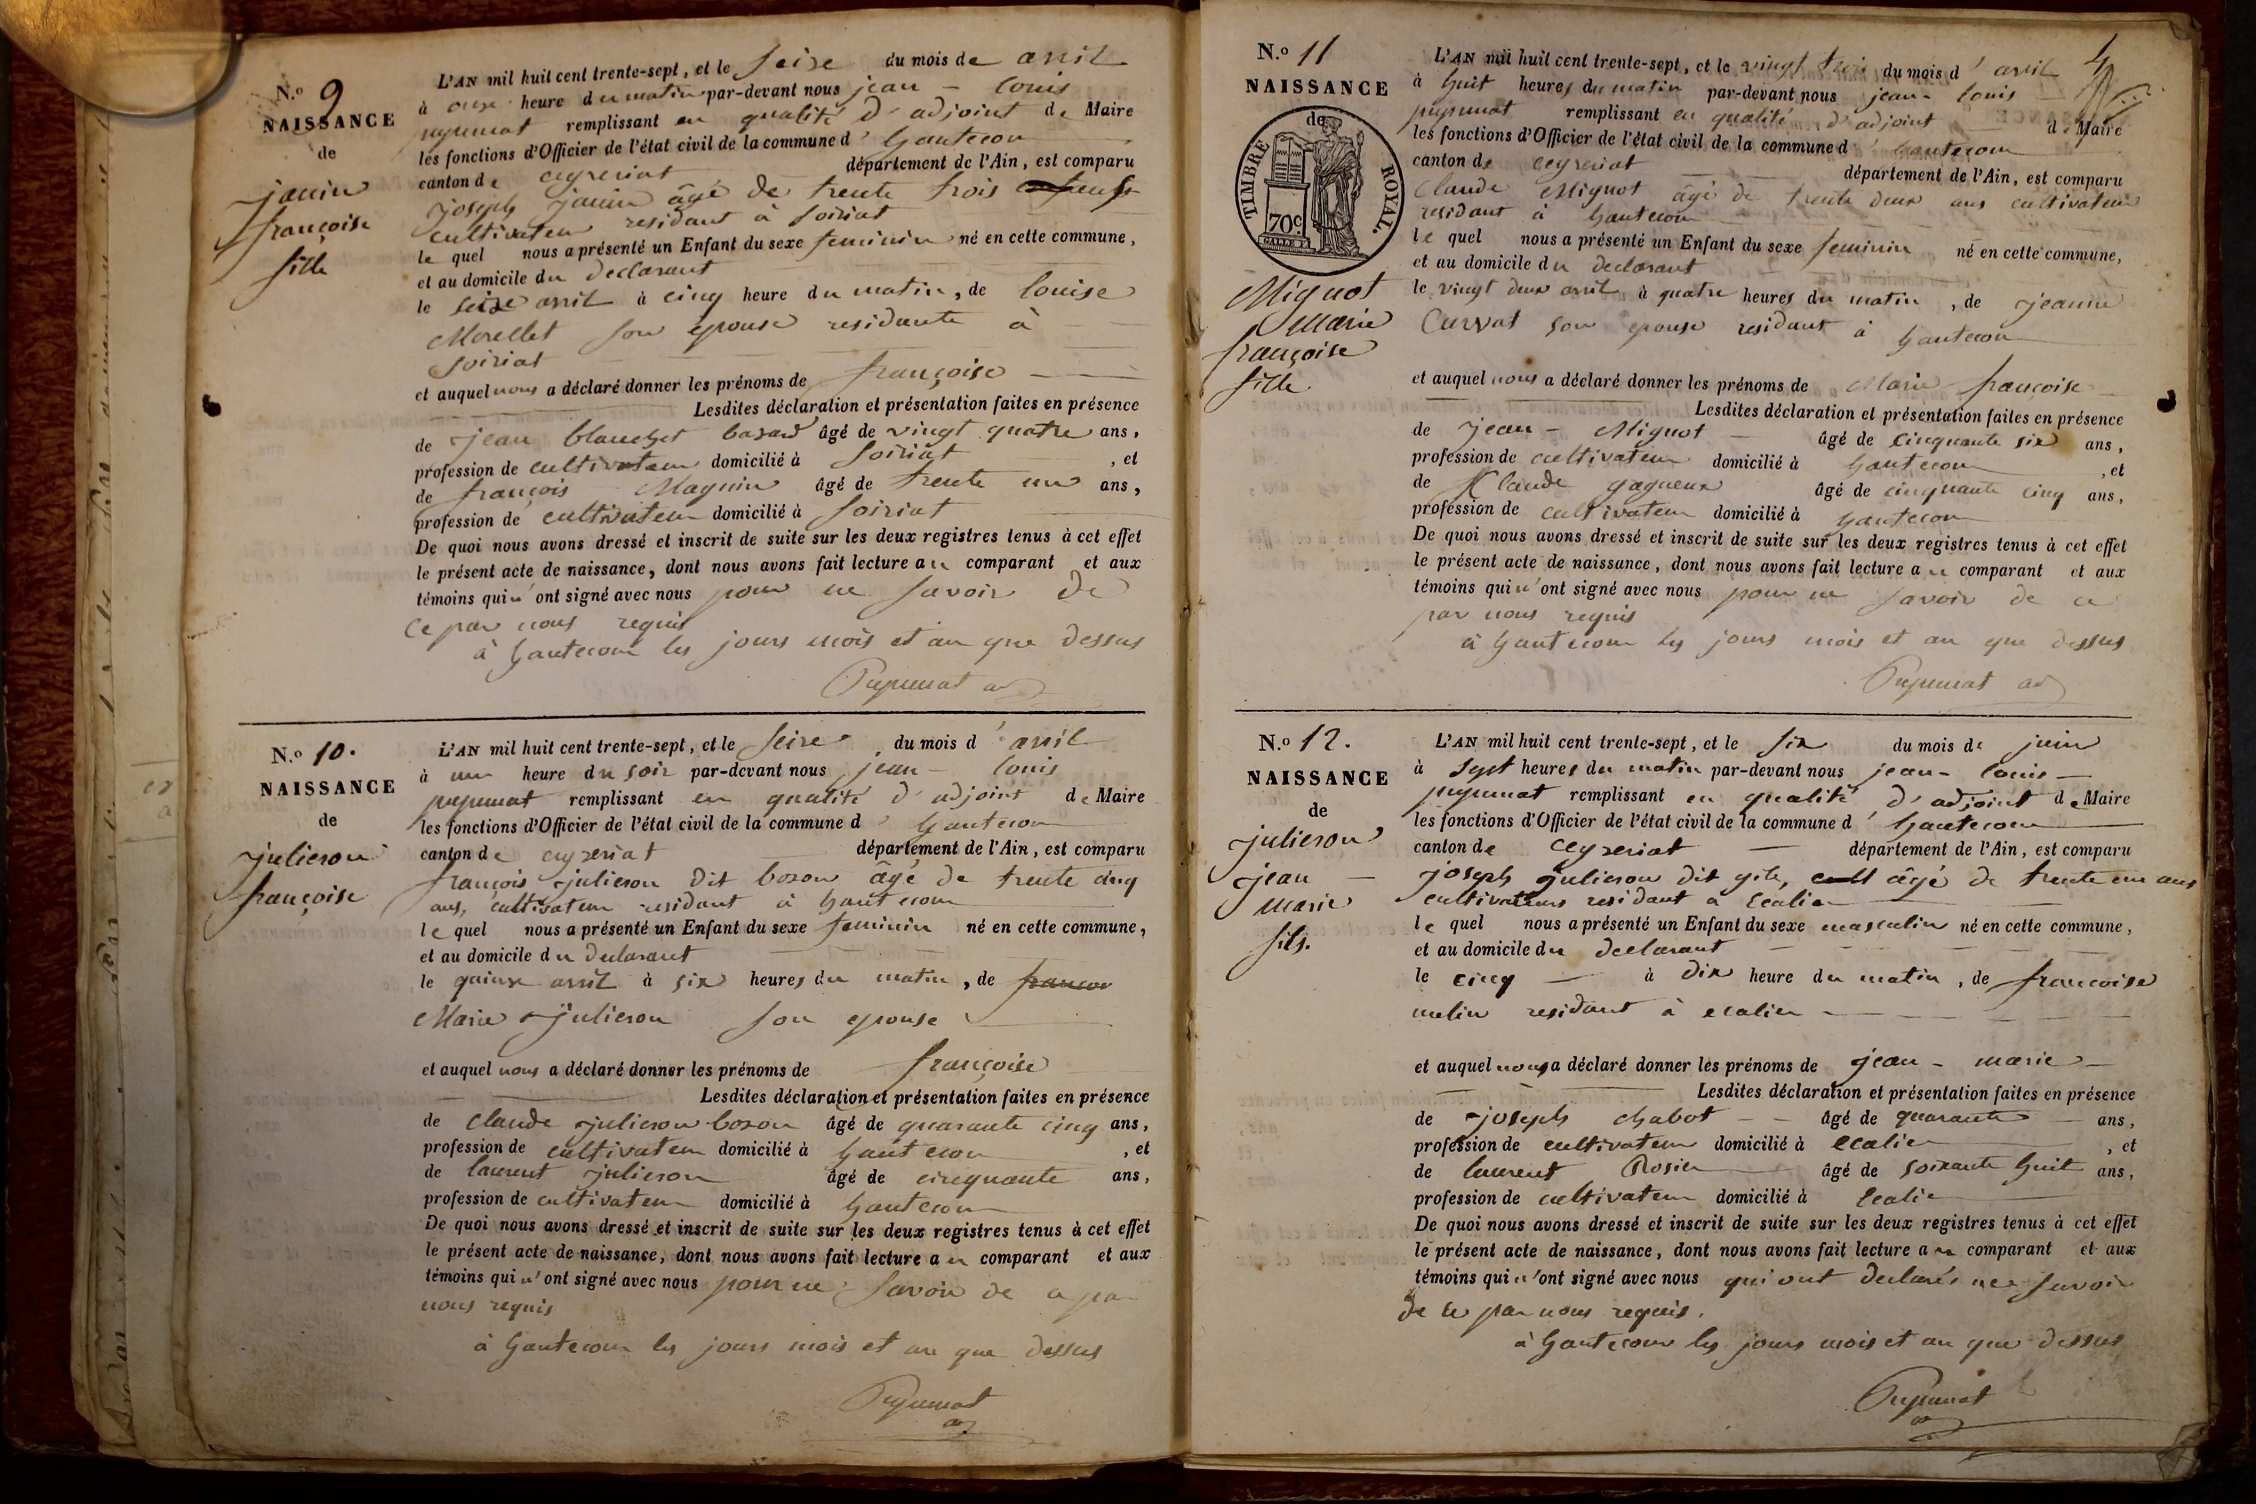 N.o 9
NAISSANCE
de
janin
françoise
fille
L'AN mil huit cent trente-sept, et le seize du mois de avril
à onze heure du matin par-devant nous jean - louis
pupunat remplissant en qualité d'adjoint de Maire
les fonctions d'Officier de l'état civil de la commune d'hautecour
canton de ceyzeriat département de l'Ain, est comparu
joseph janin âgé de trente trois
cultivateur residant à soiriat
le quel nous a présenté un Enfant du sexe feminin né en cette commune,
et au domicile du declarant
le seize avril à cinq heure du matin, de louise
Morellet son epouse residante à
soiriat
et auquel nous a déclaré donner les prénoms de françoise
Lesdites déclaration et présentation faites en présence
de jean blanchet bazard âgé de vingt quatre ans,
profession de cultivateur domicilié à soiriat , et
de françois Magnin âgé de trente un ans,
profession de cultivateur domicilié à soiriat
De quoi nous avons dressé et inscrit de suite sur les deux registres tenus à cet effet
le présent acte de naissance, dont nous avons fait lecture au comparant et aux
témoins qui n'ont signé avec nous pour ne savoir de
ce par nous requis
à hautecour les jours mois et an que dessus
Pupunat ad
N.o 10.
NAISSANCE
de
julieron
françoise
L'AN mil huit cent trente-sept, et le seize du mois d'avril
à une heure du soir par-devant nous jean - louis
pupunat remplissant en qualité d'adjoint de Maire
les fonctions d'Officier de l'état civil de la commune d'hautecour
canton de ceyzeriat département de l'Ain, est comparu
françois julieron dit bozon âgé de trente cinq
ans, cultivateur residant à hautecour
le quel nous a présenté un Enfant du sexe feminin né en cette commune,
et au domicile du declarant
le quinze avril à six heures du matin, de francoi
Marie julieron son epouse
et auquel nous a déclaré donner les prénoms de françoise
Lesdites déclaration et présentation faites en présence
de claude julieron bozon âgé de quarante cinq ans,
profession de cultivateur domicilié à hautecour , et
de laurent julieron âgé de cinquante ans,
profession de cultivateur domicilié à hautecour
De quoi nous avons dressé et inscrit de suite sur les deux registres tenus à cet effet
le présent acte de naissance, dont nous avons fait lecture au comparant et aux
témoins qui n'ont signé avec nous pour ne savoir de ce par
nous requis
à hautecour les jours mois et an que dessus
Pupunat
ad
N.o 11
NAISSANCE
de
TIMBRE ROYAL.
70c
Mignot
Marie
françoise
fille
4
L'AN mil huit cent trente-sept, et le vingt trois du mois d'avril
à huit heures du matin par-devant nous jean - louis
pupunat remplissant en qualité d'adjoint de Maire
les fonctions d'Officier de l'état civil de la commune d'hautecour
canton de ceyzeriat département de l'Ain, est comparu
Claude Mignot âgé de trente deux ans cultivateur
residant à hautecour
le quel nous a présenté un Enfant du sexe feminin né en cette commune,
et au domicile du declarant
le vingt deux avril à quatre heures du matin, de jeanne
Curvat son epouse residant à hautecour
et auquel nous a déclaré donner les prénoms de Marie françoise
Lesdites déclaration et présentation faites en présence
de jean - Mignot âgé de cinquante six ans,
profession de cultivateur domicilié à hautecour , et
de Claude gagneux âgé de cinquante cinq ans,
profession de cultivateur domicilié à hautecour
De quoi nous avons dressé et inscrit de suite sur les deux registres tenus à cet effet
le présent acte de naissance, dont nous avons fait lecture au comparant et aux
témoins qui n'ont signé avec nous pour ne savoir de ce
par nous requis
à hautecour les jours mois et an que dessus
Pupunat ad
N.o 12.
NAISSANCE
de
julieron
jean
Marie
fils.
L'AN mil huit cent trente-sept, et le six du mois de juin
à sept heures du matin par-devant nous jean - louis
pupunat remplissant en qualité d'adjoint de Maire
les fonctions d'Officier de l'état civil de la commune d'hautecour
canton de ceyzeriat département de l'Ain, est comparu
joseph julieron dit gite, cult âgé de trente un ans
cultivateurs residant a Ecalier
le quel nous a présenté un Enfant du sexe masculin né en cette commune,
et au domicile du declarant
le cinq à dix heure du matin, de francoise
melin residant à ecalier
et auquel nous a déclaré donner les prénoms de jean - marie
Lesdites déclaration et présentation faites en présence
de joseph chabot âgé de quarante ans,
profession de cultivateur domicilié à ecalier , et
de laurent Rosier âgé de soixante huit ans,
profession de cultivateur domicilié à Ecalier
De quoi nous avons dressé et inscrit de suite sur les deux registres tenus à cet effet
le présent acte de naissance, dont nous avons fait lecture au comparant et aux
témoins qui n'ont signé avec nous qui ont declarés ne savoir
de ce par nous requis.
à hautecour les jours mois et an que dessus
Pupunat
ad